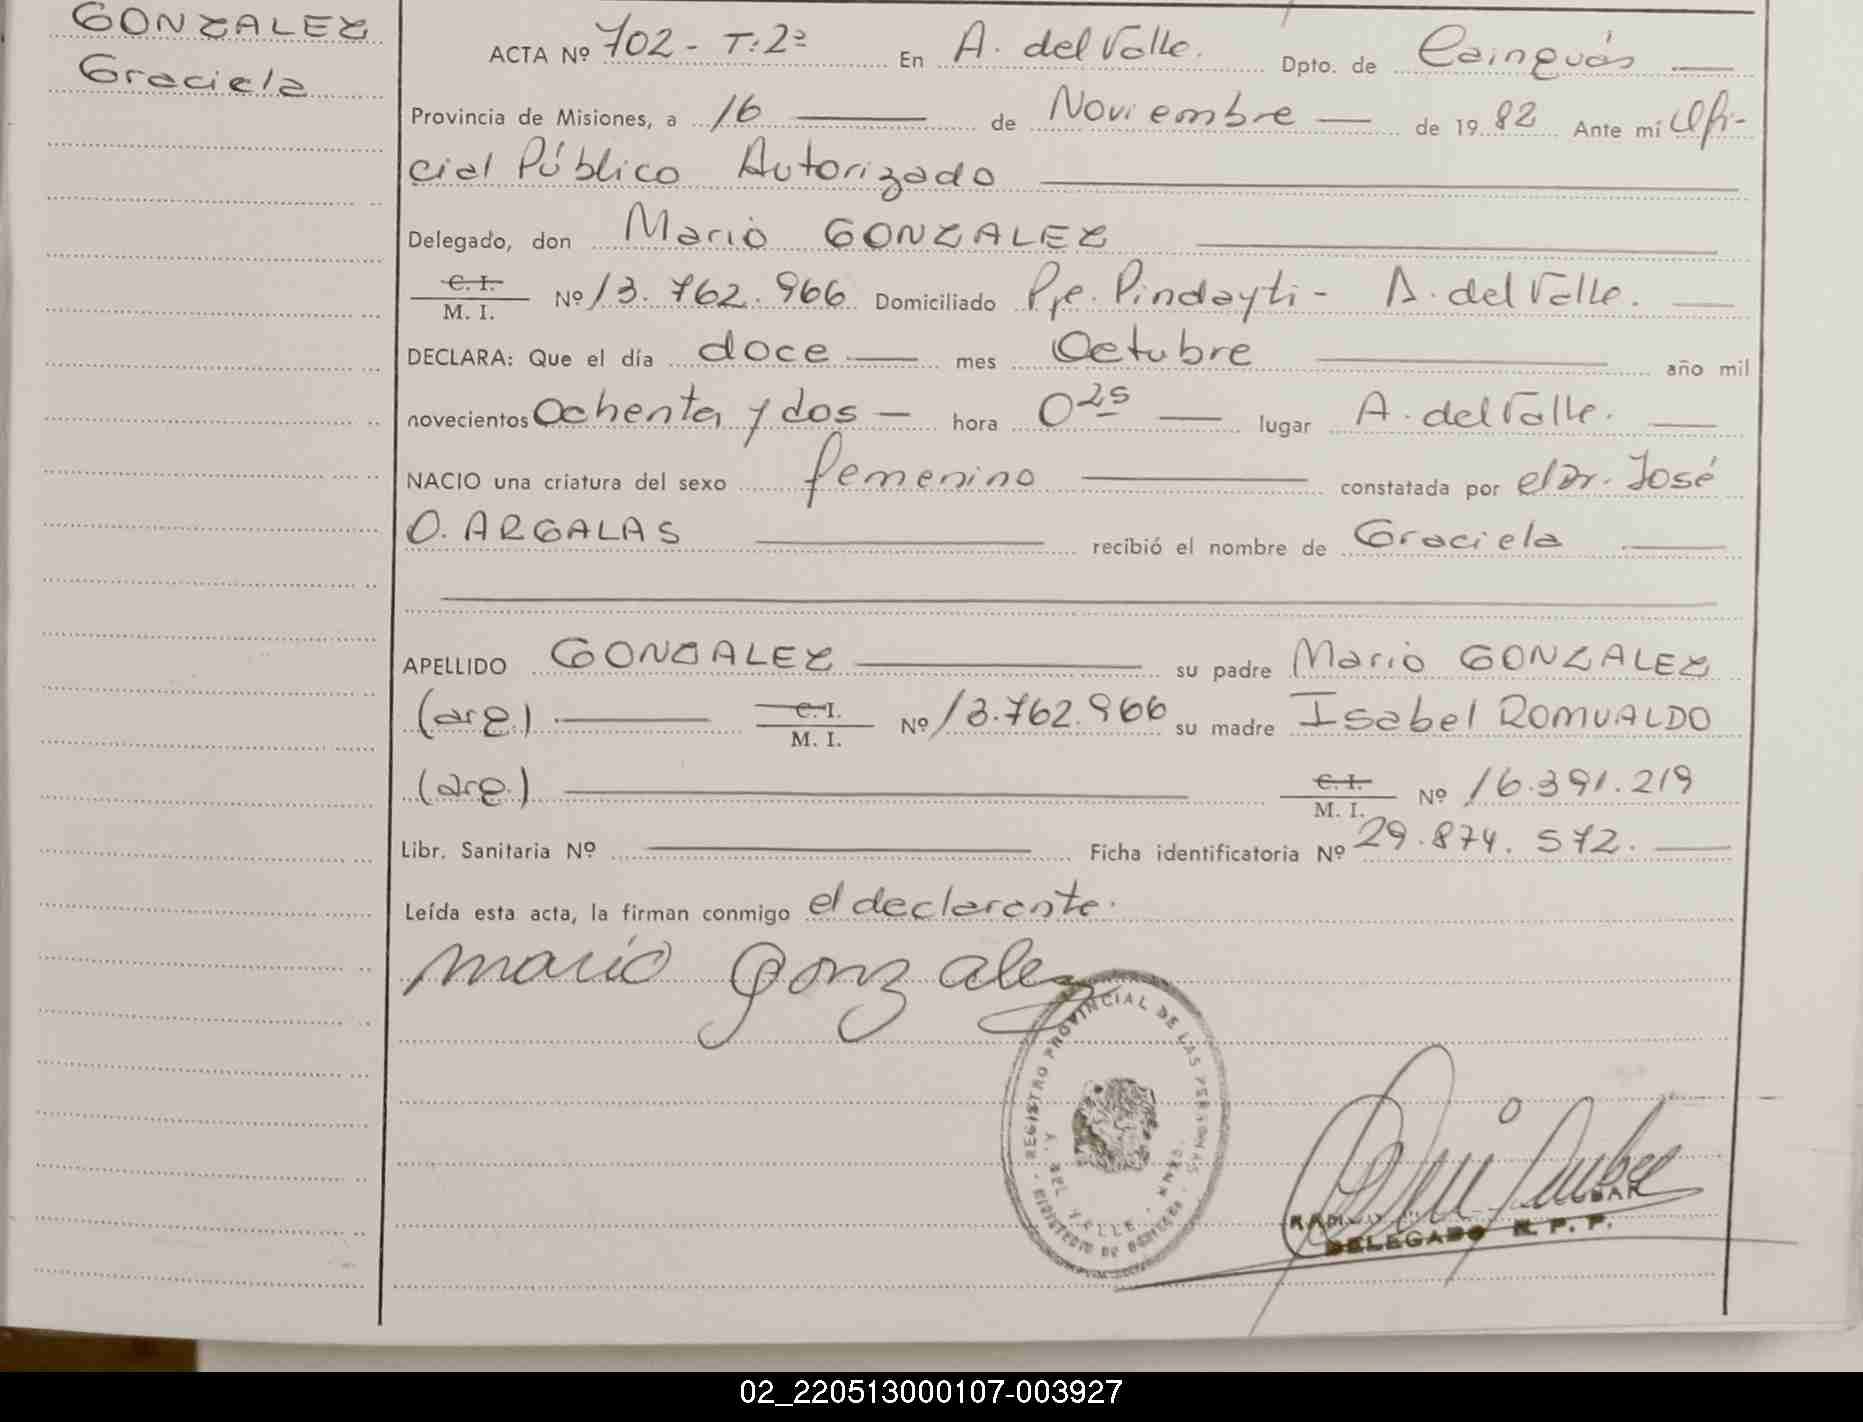 GONZALEZ
Graciela
ACTA Nº 702 - T: 2ª En A. del Valle. Dpto. de Cainguás
Provincia de Misiones, a 16 de Noviembre de 1982 Ante mí Ofi-
cial Público Autorizado
Delegado, don Mario GONZALEZ
C. I.
M. I. Nº 13.762.966 Domiciliado Pje. Pindayti - A. del Valle.
DECLARA: Que el día doce mes Octubre año mil
novecientos Ochenta y dos hora 0 25 lugar A. del Valle.
NACIO una criatura del sexo femenino constatada por el Dr. José
O. ARGALAS recibió el nombre de Graciela
APELLIDO GONZALEZ su padre Mario GONZALEZ
(arg.) C. I.
M. I. Nº 13.762.966 su madre Isabel ROMUALDO
(arg.) C. I.
M. I. Nº 16.391.219
Libr. Sanitaria Nº Ficha identificatoria Nº 29.874.572.
Leída esta acta, la firman conmigo el declarante.
mario gonzalez
REGISTRO PROVINCIAL DE LAS PERSONAS
DEL VALLE
DELEGADO R. P. P.
02_220513000107-003927